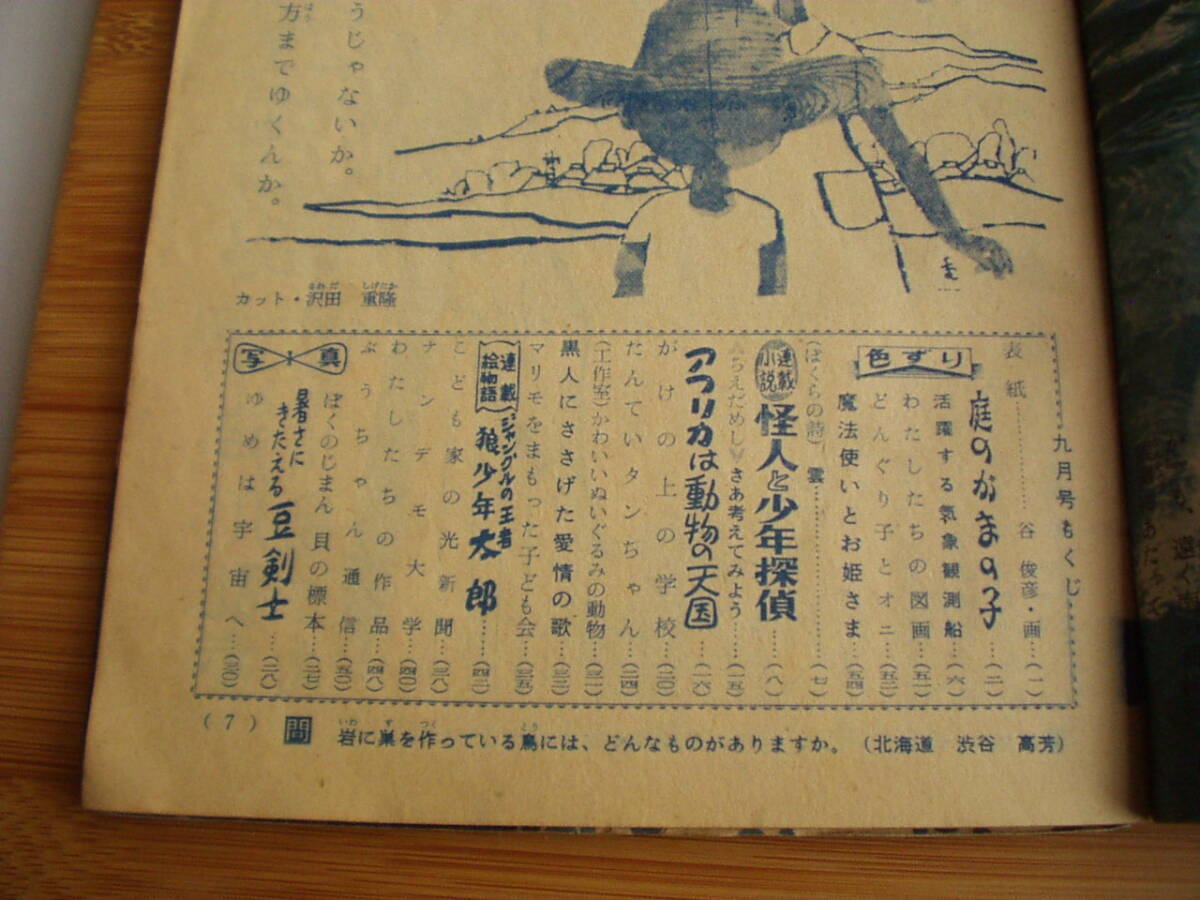 うじゃないか。
方までゆくんか。
カット・沢田 重隆
九月号もくじ
表紙……谷 俊彦・画…(一)
色ずり
庭のかまの子…(二)
活躍する気象観測船…(六)
わたしたちの図画…(五一)
どんぐり子とオニ…(五二)
魔法使いとお姫さま…(五四)
(ぼくらの詩) 雲……(七)
連載小説 怪人と少年探偵……(八)
(ちえだめし) さあ考えてみよう…(一五)
アフリカは動物の天国…(一六)
がけの上の学校…(二〇)
たんていタンちゃん…(二四)
(工作室) かわいいぬいぐるみの動物…(三一)
黒人にささげた愛情の歌…(三二)
マリモをまもった子ども会…(三五)
連載絵物語 ジャングルの王者 狼少年太郎……(四二)
こども家の光新聞…(三八)
ナンデモ大学…(四〇)
わたしたちの作品…(四八)
ぶうちゃん通信…(五〇)
写真
ぼくのじまん 貝の標本…(二七)
暑さにきたえる豆剣士…(二八)
ゆめは宇宙へ…(三〇)
(7) 問 岩に巣を作っている鳥には、どんなものがありますか。 (北海道 渋谷 高芳)